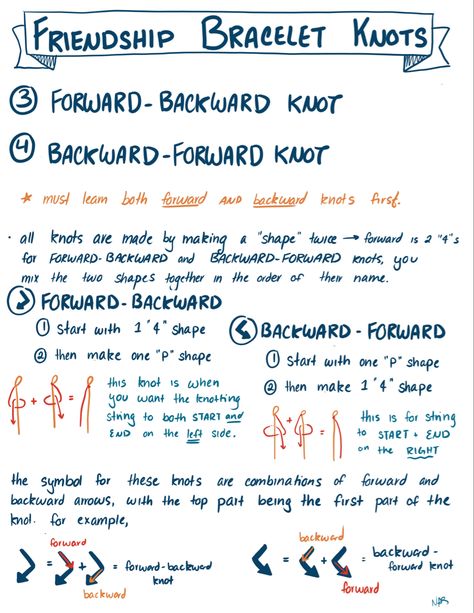 FRIENDSHIP BRACELET KNOTS
③ FORWARD-BACKWARD KNOT
④ BACKWARD-FORWARD KNOT
* must learn both forward AND backward knots first.
· all knots are made by making a "shape" twice → forward is 2 "4"s
for FORWARD-BACKWARD and BACKWARD-FORWARD knots, you
mix the two shapes together in the order of their name.
FORWARD-BACKWARD
① Start with 1 "4" shape
② then make one "P" shape
this knot is when
you want the knotting
string to both START and
END on the left side.
BACKWARD - FORWARD
① Start with one "P" shape
② then make 1 "4" shape
this is for string
to START + END
on the RIGHT
the symbol for these knots are combinations of forward and
backward arrows, with the top part being the first part of the
knot. for example,
forward
= + = forward-backward
knot
backward
backward
= + = backward-
forward knot
forward